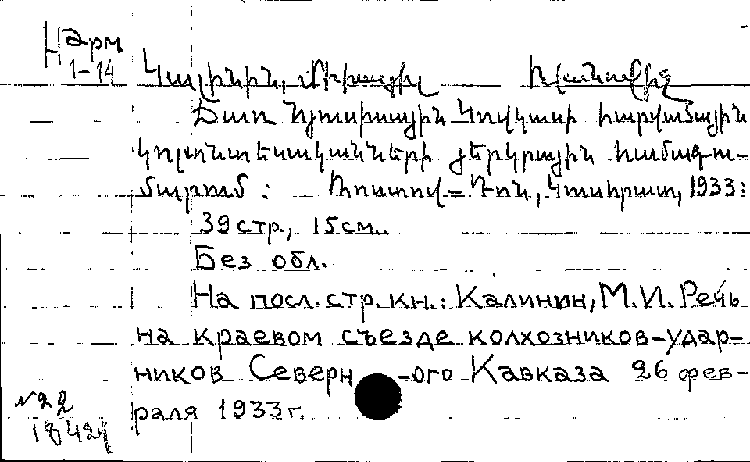 Нарм
1-14
Կալինին, Միխայիլ Իվանովիչ
Ճառ Հյուսիսային Կովկասի հարվածային
կոլտնտեսականների յերկրային համագու-
մարում: Ռոստով-Դոն, 1933:
39 стр., 15 см.
Без обл.
На посл. стр. кн.: Калинин, М.И. Речь
на краевом съезде колхозников-удар-
ников Северн -ого Кавказа 26 фев-
раля 1933 г.
№22
18424